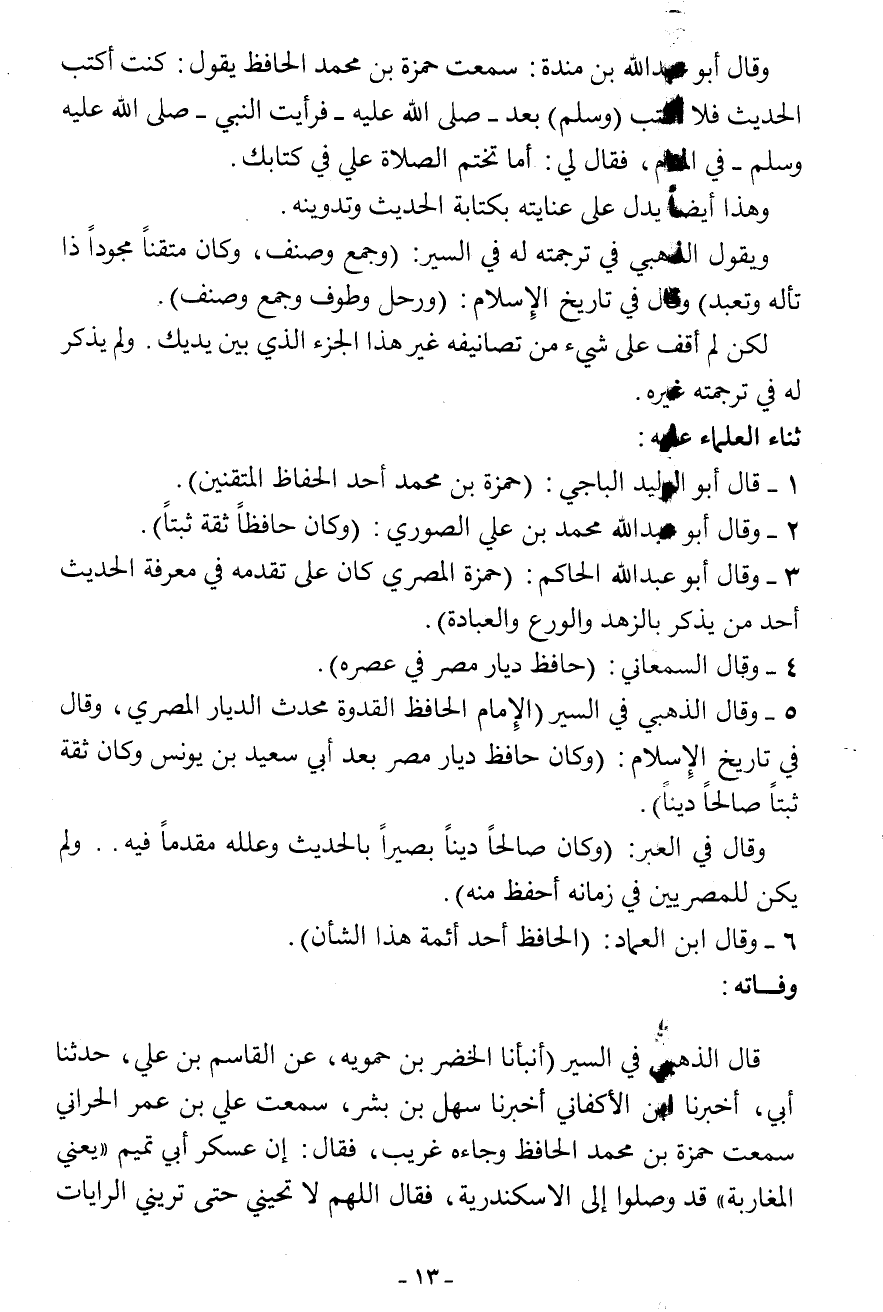 وقال أبو عبدالله بن مندة: سمعت حمزة بن محمد الحافظ يقول: كنت أكتب
الحديث فلا أكتب (وسلم) بعد ـ صلى الله عليه ـ فرأيت النبي ـ صلى الله عليه
وسلم ـ في المنام، فقال لي: أما تختم الصلاة علي في كتابك.
وهذا أيضاً يدل على عنايته بكتابة الحديث وتدوينه.
ويقول الذهبي في ترجمته له في السير: (وجمع وصنف، وكان متقناً مجوداً ذا
تأله وتعبد) وقال في تاريخ الإسلام: (ورحل وطوف وجمع وصنف).
لكن لم أقف على شيء من تصانيفه غير هذا الجزء الذي بين يديك. ولم يذكر
له في ترجمته غيره.
ثناء العلماء عليه:
١ ـ قال أبو الوليد الباجي: (حمزة بن محمد أحد الحفاظ المتقنين).
٢ ـ وقال أبو عبدالله محمد بن علي الصوري: (وكان حافظاً ثقة ثبتاً).
٣ ـ وقال أبو عبدالله الحاكم: (حمزة المصري كان على تقدمه في معرفة الحديث
أحد من يذكر بالزهد والورع والعبادة).
٤ ـ وقال السمعاني: (حافظ ديار مصر في عصره).
٥ ـ وقال الذهبي في السير (الإمام الحافظ القدوة محدث الديار المصري، وقال
في تاريخ الإسلام: (وكان حافظ ديار مصر بعد أبي سعيد بن يونس وكان ثقة
ثبتاً صالحاً ديناً).
وقال في العبر: (وكان صالحاً ديناً بصيراً بالحديث وعلله مقدماً فيه.. ولم
يكن للمصريين في زمانه أحفظ منه).
٦ ـ وقال ابن العماد: (الحافظ أحد أئمة هذا الشأن).
وفـاته:
قال الذهبي في السير (أنبأنا الخضر بن حمويه، عن القاسم بن علي، حدثنا
أبي، أخبرنا ابن الأكفاني أخبرنا سهل بن بشر، سمعت علي بن عمر الحراني
سمعت حمزة بن محمد الحافظ وجاءه غريب، فقال: إن عسكر أبي تميم «يعني
المغاربة» قد وصلوا إلى الاسكندرية، فقال اللهم لا تحيني حتى تريني الرايات
ـ ١٣ ـ